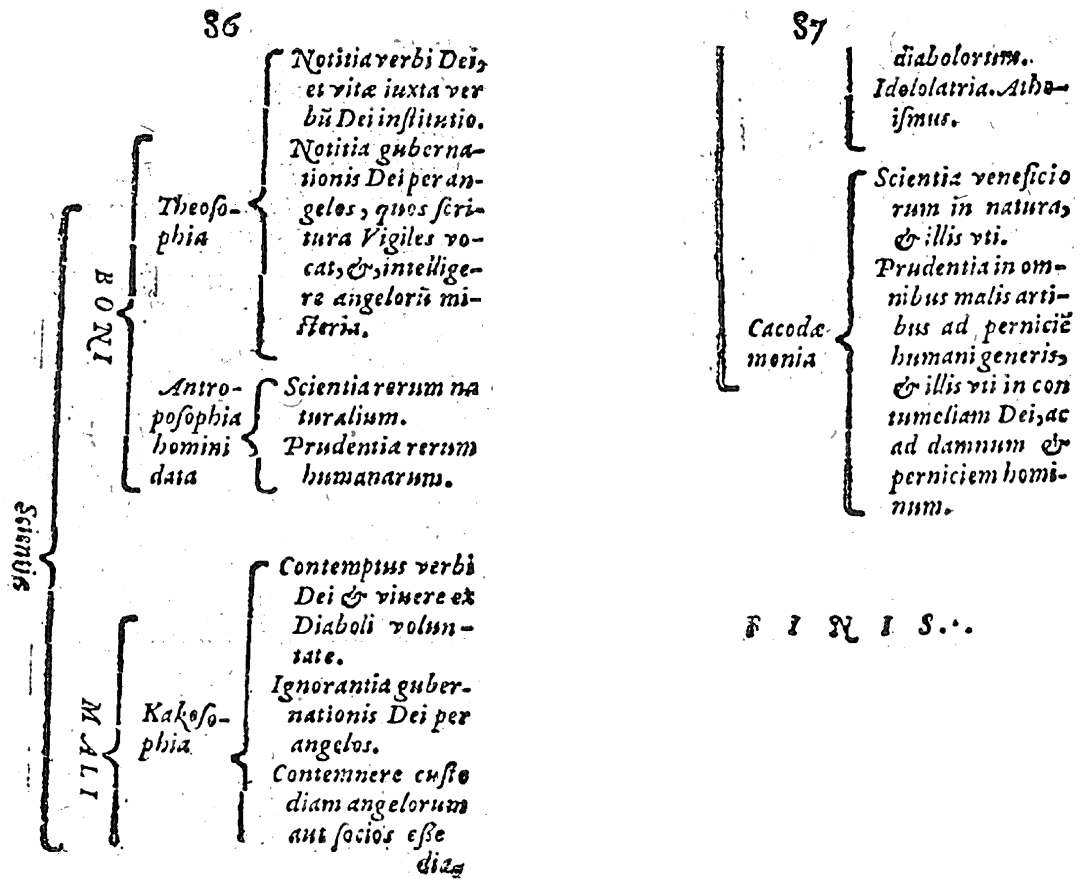 86
Notitia verbi Dei,
et vitæ iuxta ver
bũ Dei inſtitutio.
Notitia guberna-
tionis Dei per an-
gelos, quos ſcri-
tura Vigiles vo-
cat, &, intellige-
re angelorũ mi-
ſteria.
Theoſo-
phia
BONI
Antro-
poſophia
homini
data
Scientia rerum na
turalium.
Prudentia rerum
humanarum.
Scientiæ
Contemptus verbi
Dei & viuere ex
Diaboli volun-
tate.
Ignorantia guber-
nationis Dei per
angelos.
Contemnere cuſto
diam angelorum
aut ſocios eſſe
dia-
MALI
Kakoſo-
phia
87
diabolorum.
Idololatria. Athe-
iſmus.
Scientia veneficio
rum in natura,
& illis vti.
Prudentia in om-
nibus malis arti-
bus ad perniciẽ
humani generis,
& illis vti in con
tumeliam Dei, ac
ad damnum &
perniciem homi-
num.
Cacodæ
monia
FINIS.·.